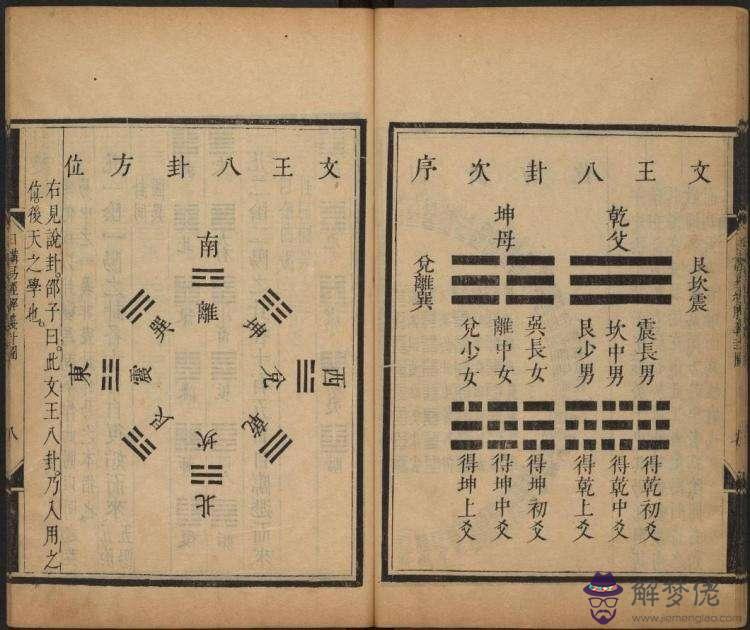 文王八卦次序
乾父
坤母
艮坎震
兌離巽
震長男
坎中男
艮少男
巽長女
離中女
兌少女
得乾初爻
得乾中爻
得乾上爻
得坤初爻
得坤中爻
得坤上爻
文王八卦方位
南
離
坤
兌
西
乾
坎
北
艮
震
東
巽
右見說卦。邵子曰。此文王八卦。乃入用之
位。後天之學也。
日講易經解義
八
解梦佬
www.jiemenglao.com